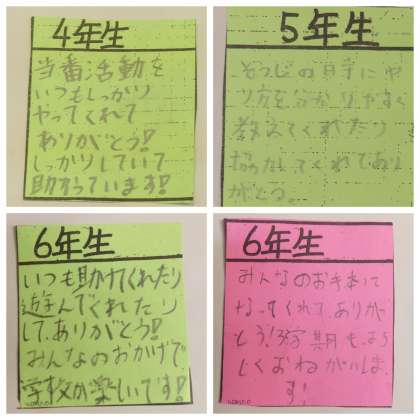 4年生
当番活動を
いつもしっかり
やってくれて
ありがとう!
しっかりしていて
助かっています!
5年生
そうじの時にや
り方を分かりやすく
教えてくれたり
協力してくれてあり
がとう。
6年生
いつも助けてくれたり
遊んでくれたり
して、ありがとう!
みんなのおかげで
学校が楽しいです!
6年生
みんなのお手本に
なってくれて、ありが
とう!3学期も、よろ
しくおねがいしま
す!